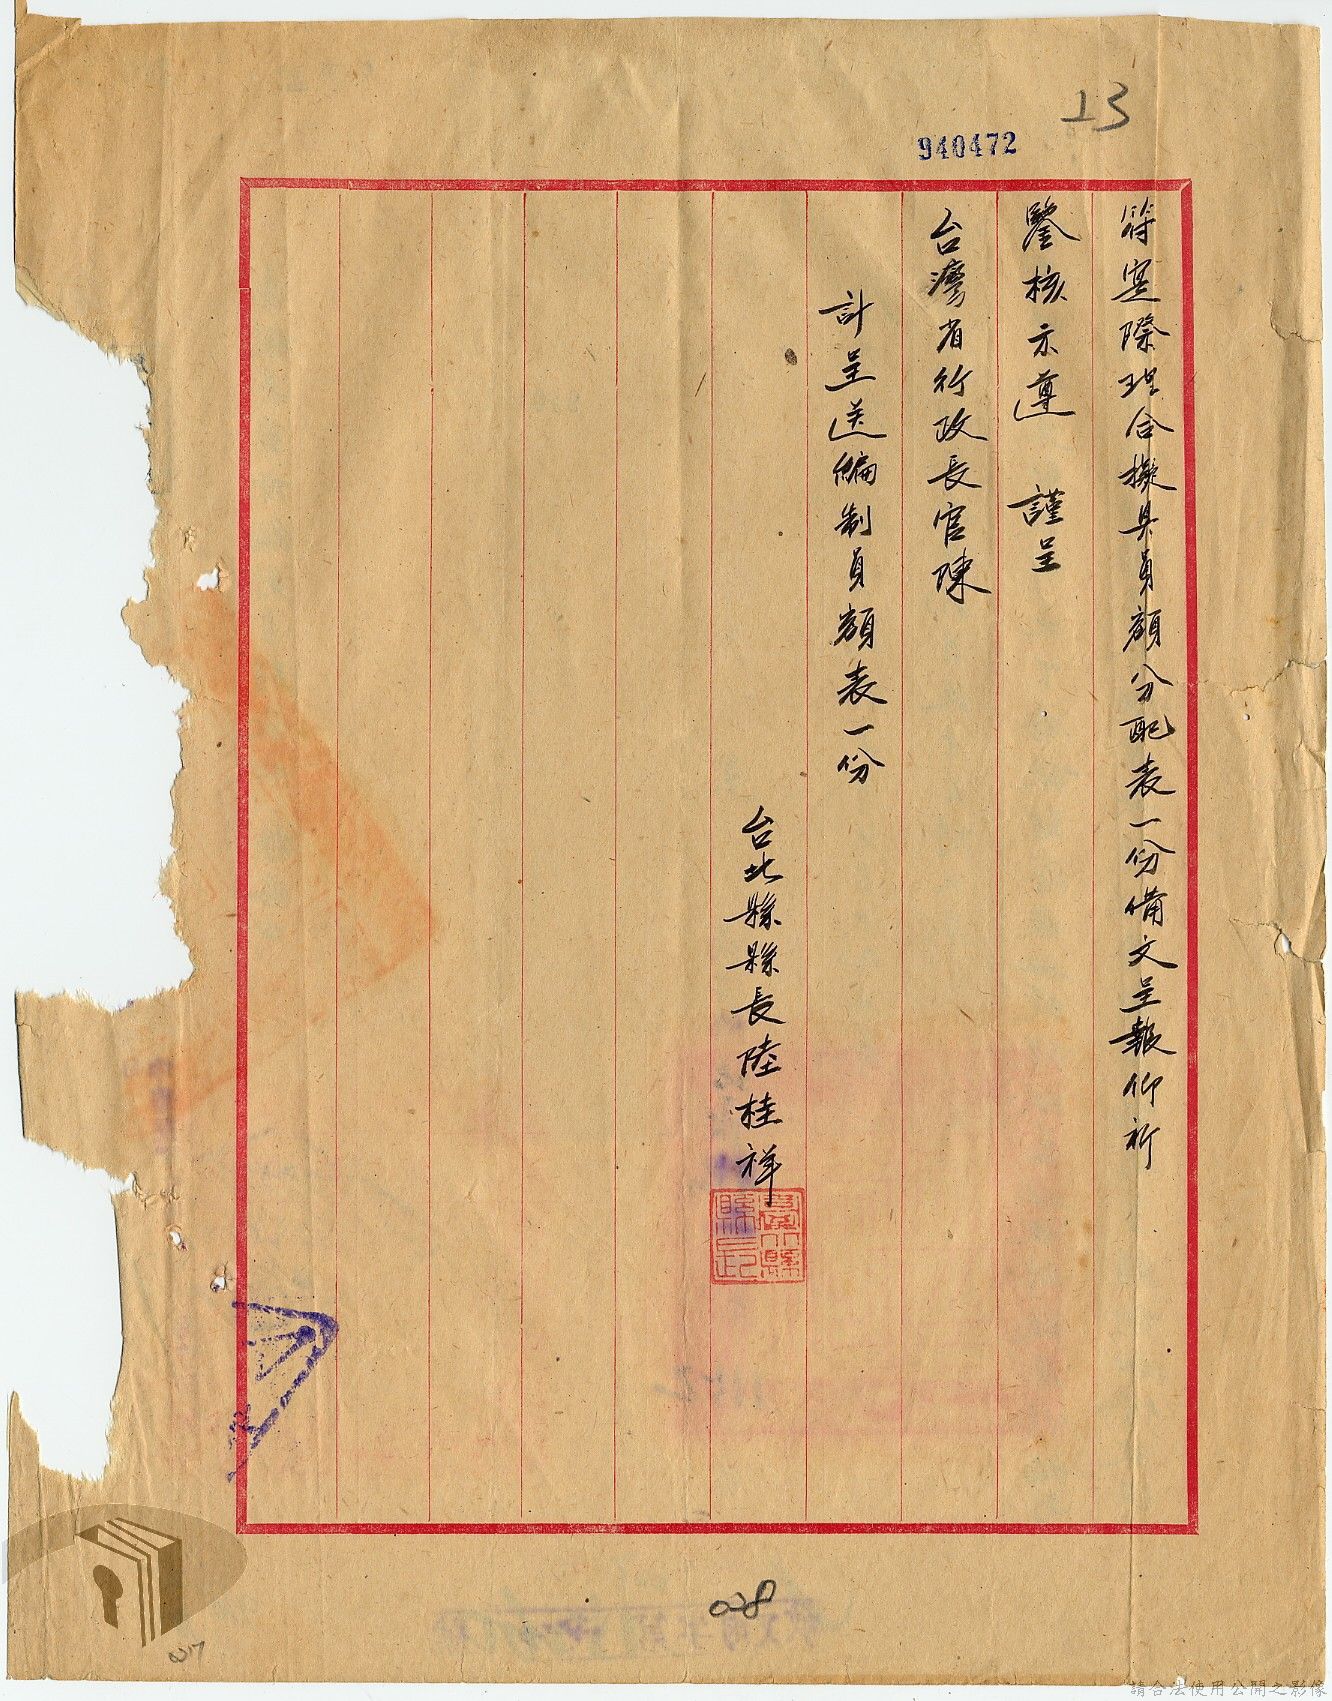 23
940472
符実際理合擬具員額分配表一份備文呈報仰祈
鑒核示遵　謹呈
台灣省行政長官陳
計呈送編制員額表一份
台北縣縣長陸桂祥
臺北縣縣長
028
027
請合法使用公開之影像